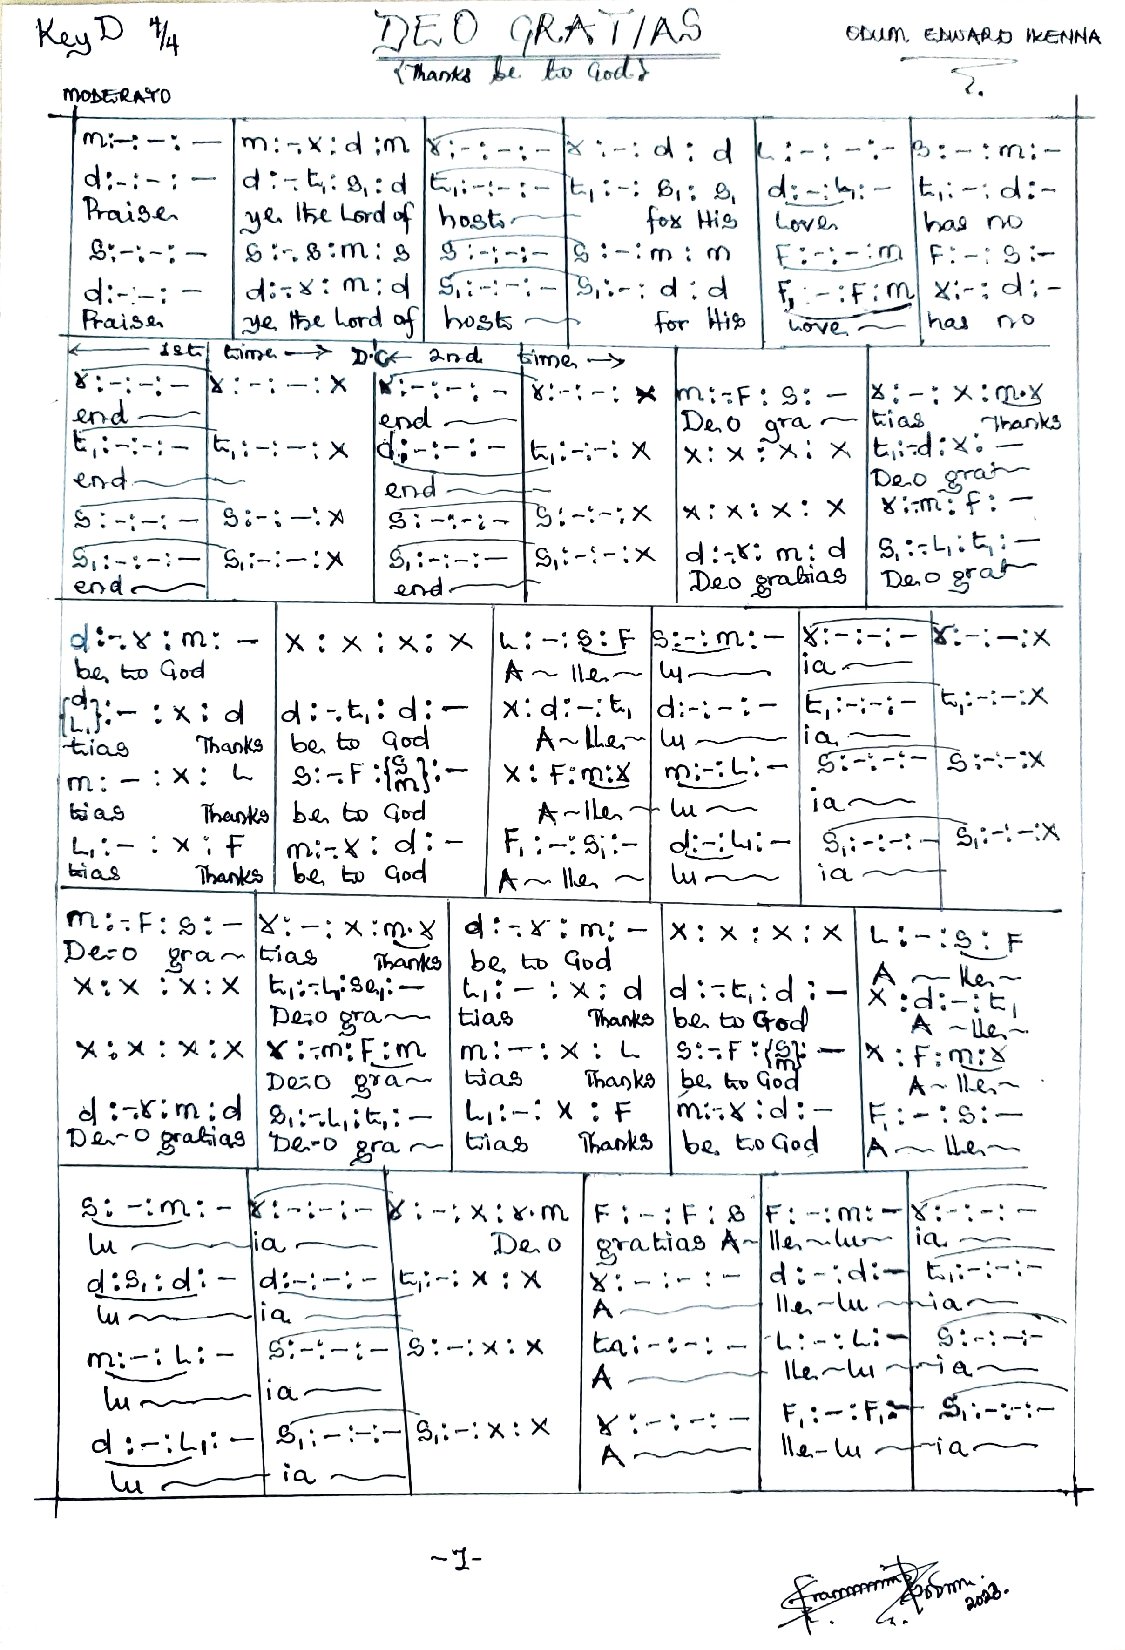 Key D 4/4
DEO GRATIAS
ODUM EDWARD IKENNA
{Thanks be to God}
MODERATO
m:-:-:- | m:-.r:d:m | r:-:-:- | r:-:d:d | L:-:-:- | s:-:m:-
d:-:-:- | d:-.t₁:s₁:d | t₁:-:-:- | t₁:-:s₁:s₁ | d:-:L₁:- | t₁:-:d:-
Praise ye the Lord of hosts for His Love has no
s:-:-:- | s:-.s:m:s | s:-:-:- | s:-:m:m | F:-:-:m | F:-:s:-
d:-:-:- | d:-.r:m:d | s₁:-:-:- | s₁:-:d:d | F₁:-:F:m | r:-:d:-
Praise ye the Lord of hosts for His Love has no
1st time D.C 2nd time
r:-:-:- | r:-:-:x | r:-:-:- | r:-:-:x | m:-.F:s:- | r:-:x:m.r
end end Deo gra tias Thanks
t₁:-:-:- | t₁:-:-:x | d:-:-:- | t₁:-:-:x | x:x:x:x | t₁:-.d:r:-
end end Deo gra
s:-:-:- | s:-:-:x | s:-:-:- | s:-:-:x | x:x:x:x | r:-.m:f:-
s₁:-:-:- | s₁:-:-:x | s₁:-:-:- | s₁:-:-:x | d:-.r:m:d | s₁:-.L₁:t₁:-
end end Deo gratias Deo gra
d:-.r:m:- | x:x:x:x | L:-:s:F | s:-:m:- | r:-:-:- | r:-:-:x
be to God A~lle~ lu ia
{d L₁}:-:x:d | d:-.t₁:d:- | x:d:-:t₁ | d:-:-:- | t₁:-:-:- | t₁:-:-:x
tias Thanks be to God A~lle~ lu ia
m:-:x:L | s:-.F:{s m}:- | x:F:m:r | m:-:L:- | s:-:-:- | s:-:-:x
tias Thanks be to God A~lle~ lu ia
L₁:-:x:F | m:-.r:d:- | F₁:-:s₁:- | d:-:L₁:- | s₁:-:-:- | s₁:-:-:x
tias Thanks be to God A~lle~ lu ia
m:-.F:s:- | r:-:x:m.r | d:-.r:m:- | x:x:x:x | L:-:s:F
De-o gra~ tias Thanks be to God A~lle~
x:x:x:x | t₁:-.L₁:se₁:- | L₁:-:x:d | d:-.t₁:d:- | x:d:-:t₁
De-o gra~ tias Thanks be to God A~lle~
x:x:x:x | r:-.m:F:m | m:-:x:L | s:-.F:{s m}:- | x:F:m:r
De-o gra~ tias Thanks be to God A~lle~
d:-.r:m:d | s₁:-.L₁:t₁:- | L₁:-:x:F | m:-.r:d:- | F₁:-:s:-
De-o gratias De-o gra~ tias Thanks be to God A~lle~
s:-:m:- | r:-:-:- | r:-:x:r.m | F:-:F:s | F:-:m:- | r:-:-:-
lu ia Deo gratias A~ lle~lu~ ia
d:s₁:d:- | d:-:-:- | t₁:-:x:x | r:-:-:- | d:-:d:- | t₁:-:-:-
lu ia A lle-lu ia
m:-:L:- | s:-:-:- | s:-:x:x | ta:-:-:- | L:-:L:- | s:-:-:-
lu ia A lle-lu ia
d:-:L₁:- | s₁:-:-:- | s₁:-:x:x | r:-:-:- | F₁:-:F₁:- | s₁:-:-:-
lu ia A lle-lu ia
-1-
2023.